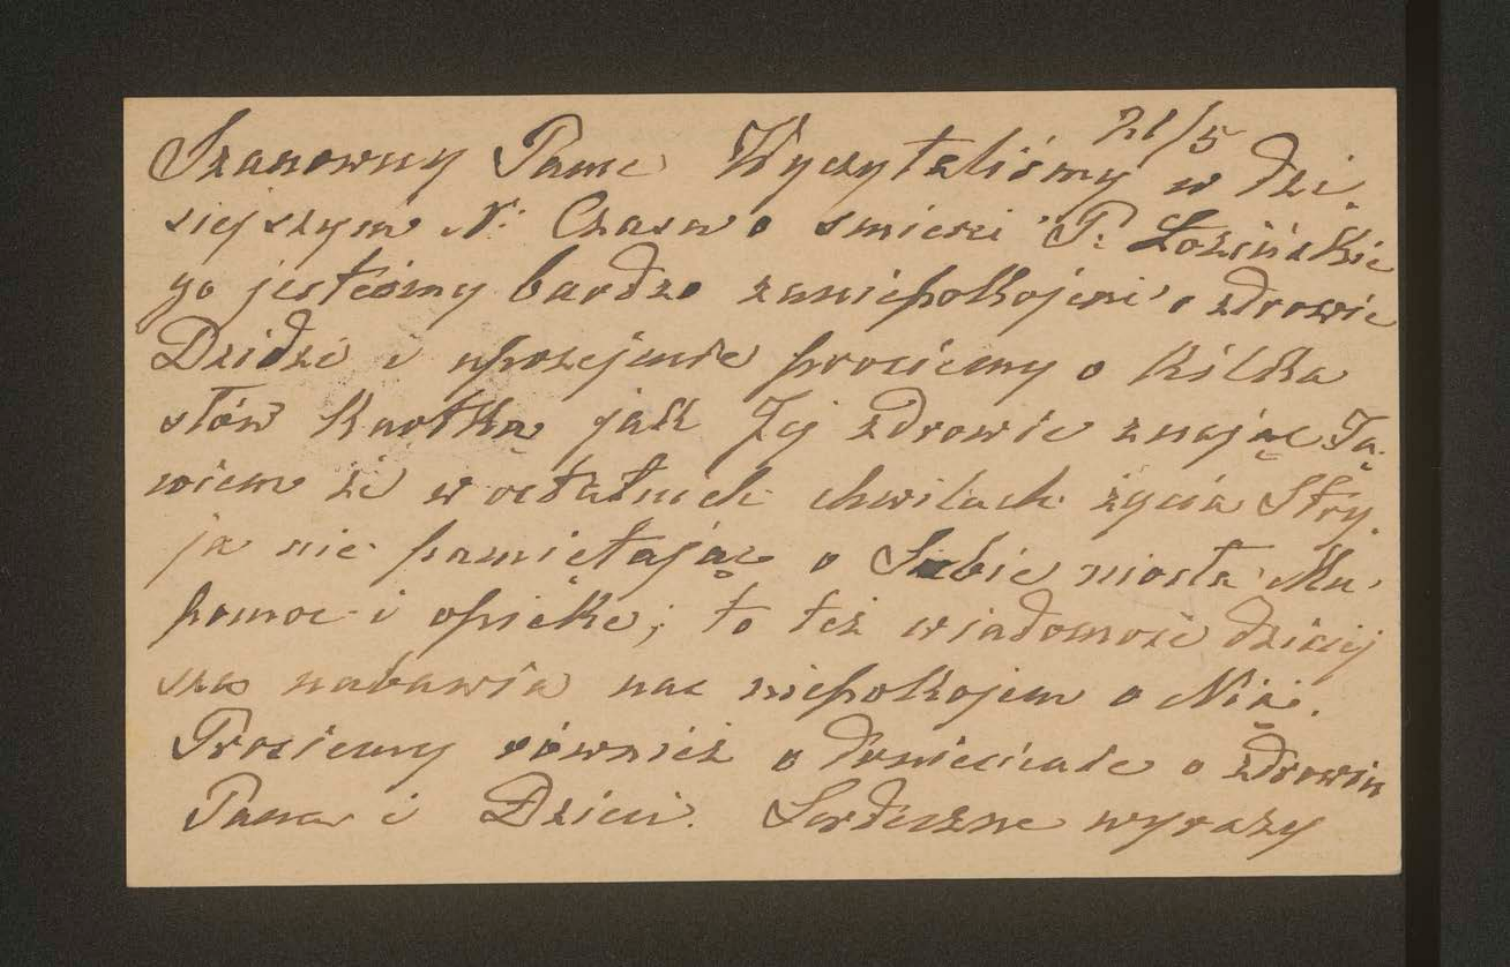 21/5
Szanowny Panie Wyczytaliśmy w dzi.
siejszym N: Czasu o śmierci P. Łozińskie
go jesteśmy bardzo zaniepokojeni o zdrowie
Dzidzi i uprzejmie prosimy o kilka
słów kartką jak Jej zdrowie znając Ją.
wiem że w ostatnich chwilach życia Stry.
ja nie pamiętając o Sobie niosła Mu.
pomoc i opiekę; to też wiadomość dzisiej
sza nabawia nas niepokojem o Nią.
Prosiemy również o doniesienie o zdrowiu
Pana i Dzieci. Serdeczne wyrazy